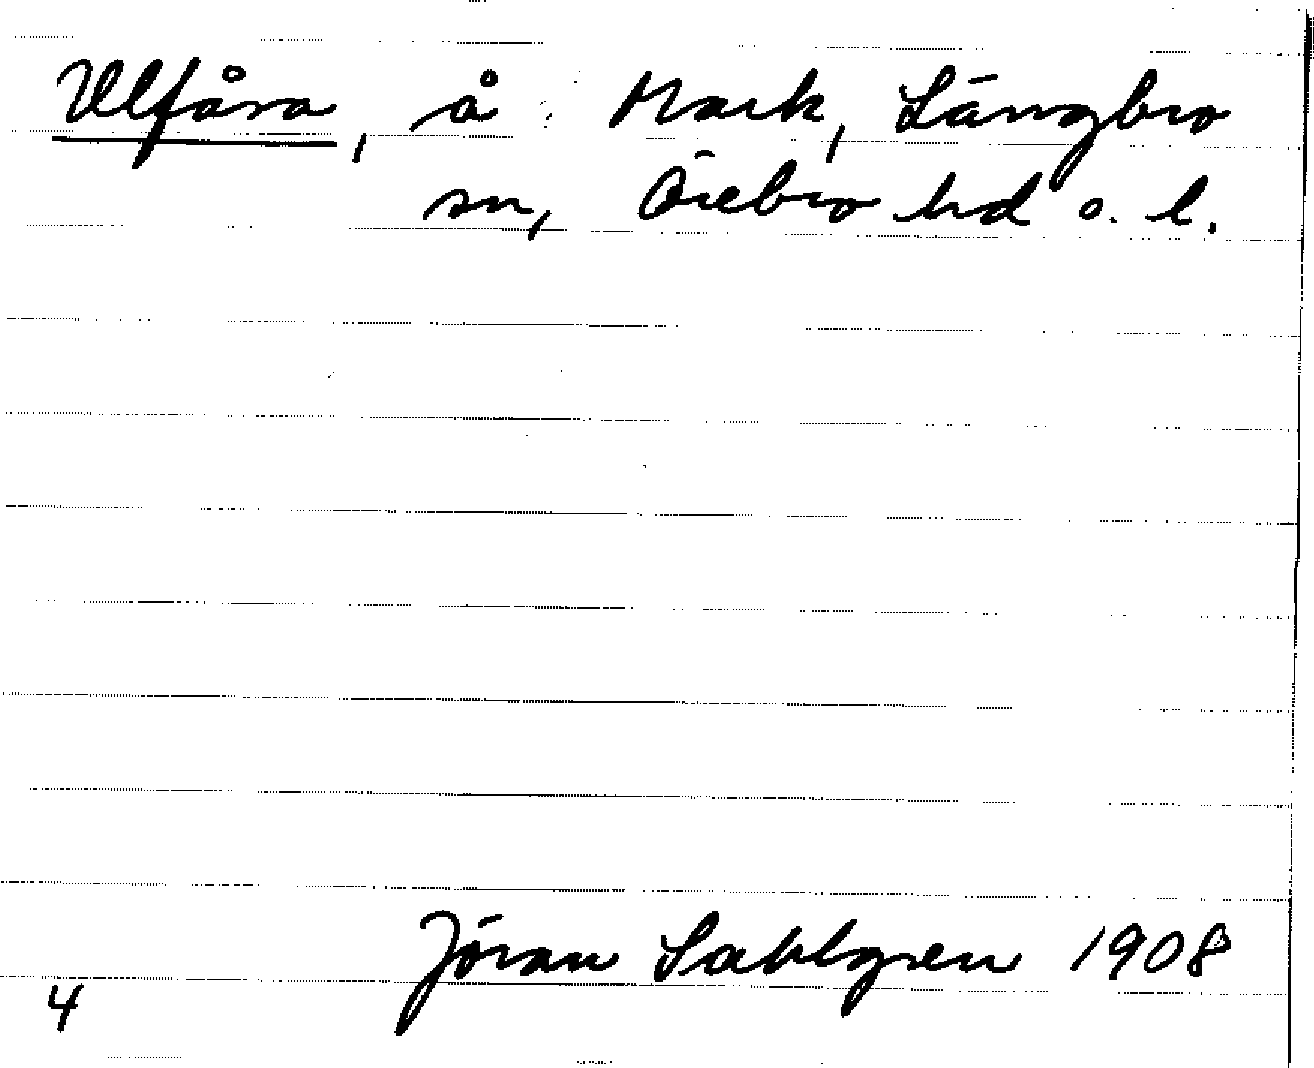 Ulfåra, å : Mark, Längbro
sn, Örebro hd o. l.
Jöran Sahlgren 1908
4